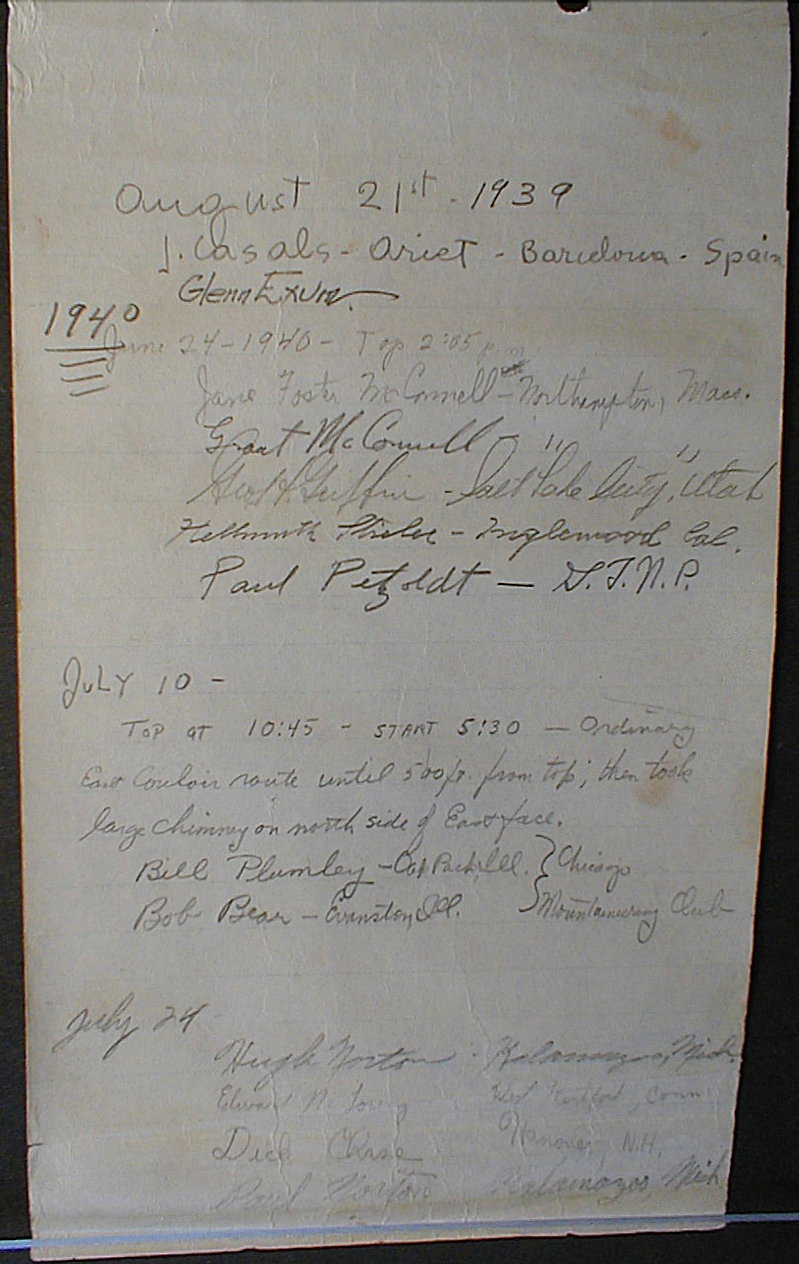 August 21st. 1939
J. Casals - Ariet - Barcelona - Spain
Glenn Exum
1940
June 24 - 1940 - Top 2:05 p.m.
Jane Foster McConnell - Northampton, Mass.
Grant McConnell - " "
Geo. H. Griffin - Salt Lake City, Utah
Inglewood Cal.
Paul Petzoldt — G.T.N.P.
July 10 -
Top at 10:45 - START 5:30 - Ordinary
East Couloir route until 500ft. from top; then took
large chimney on north side of East face.
Bill Plumley - Oak Park, Ill. } Chicago
Bob Bear - Evanston, Ill. Mountaineering Club
July 24
Hugh Norton - Kalamazoo, Mich.
Edward N. Conn
Dick Chase Hanover, N.H.
Paul Norton Kalamazoo, Mich